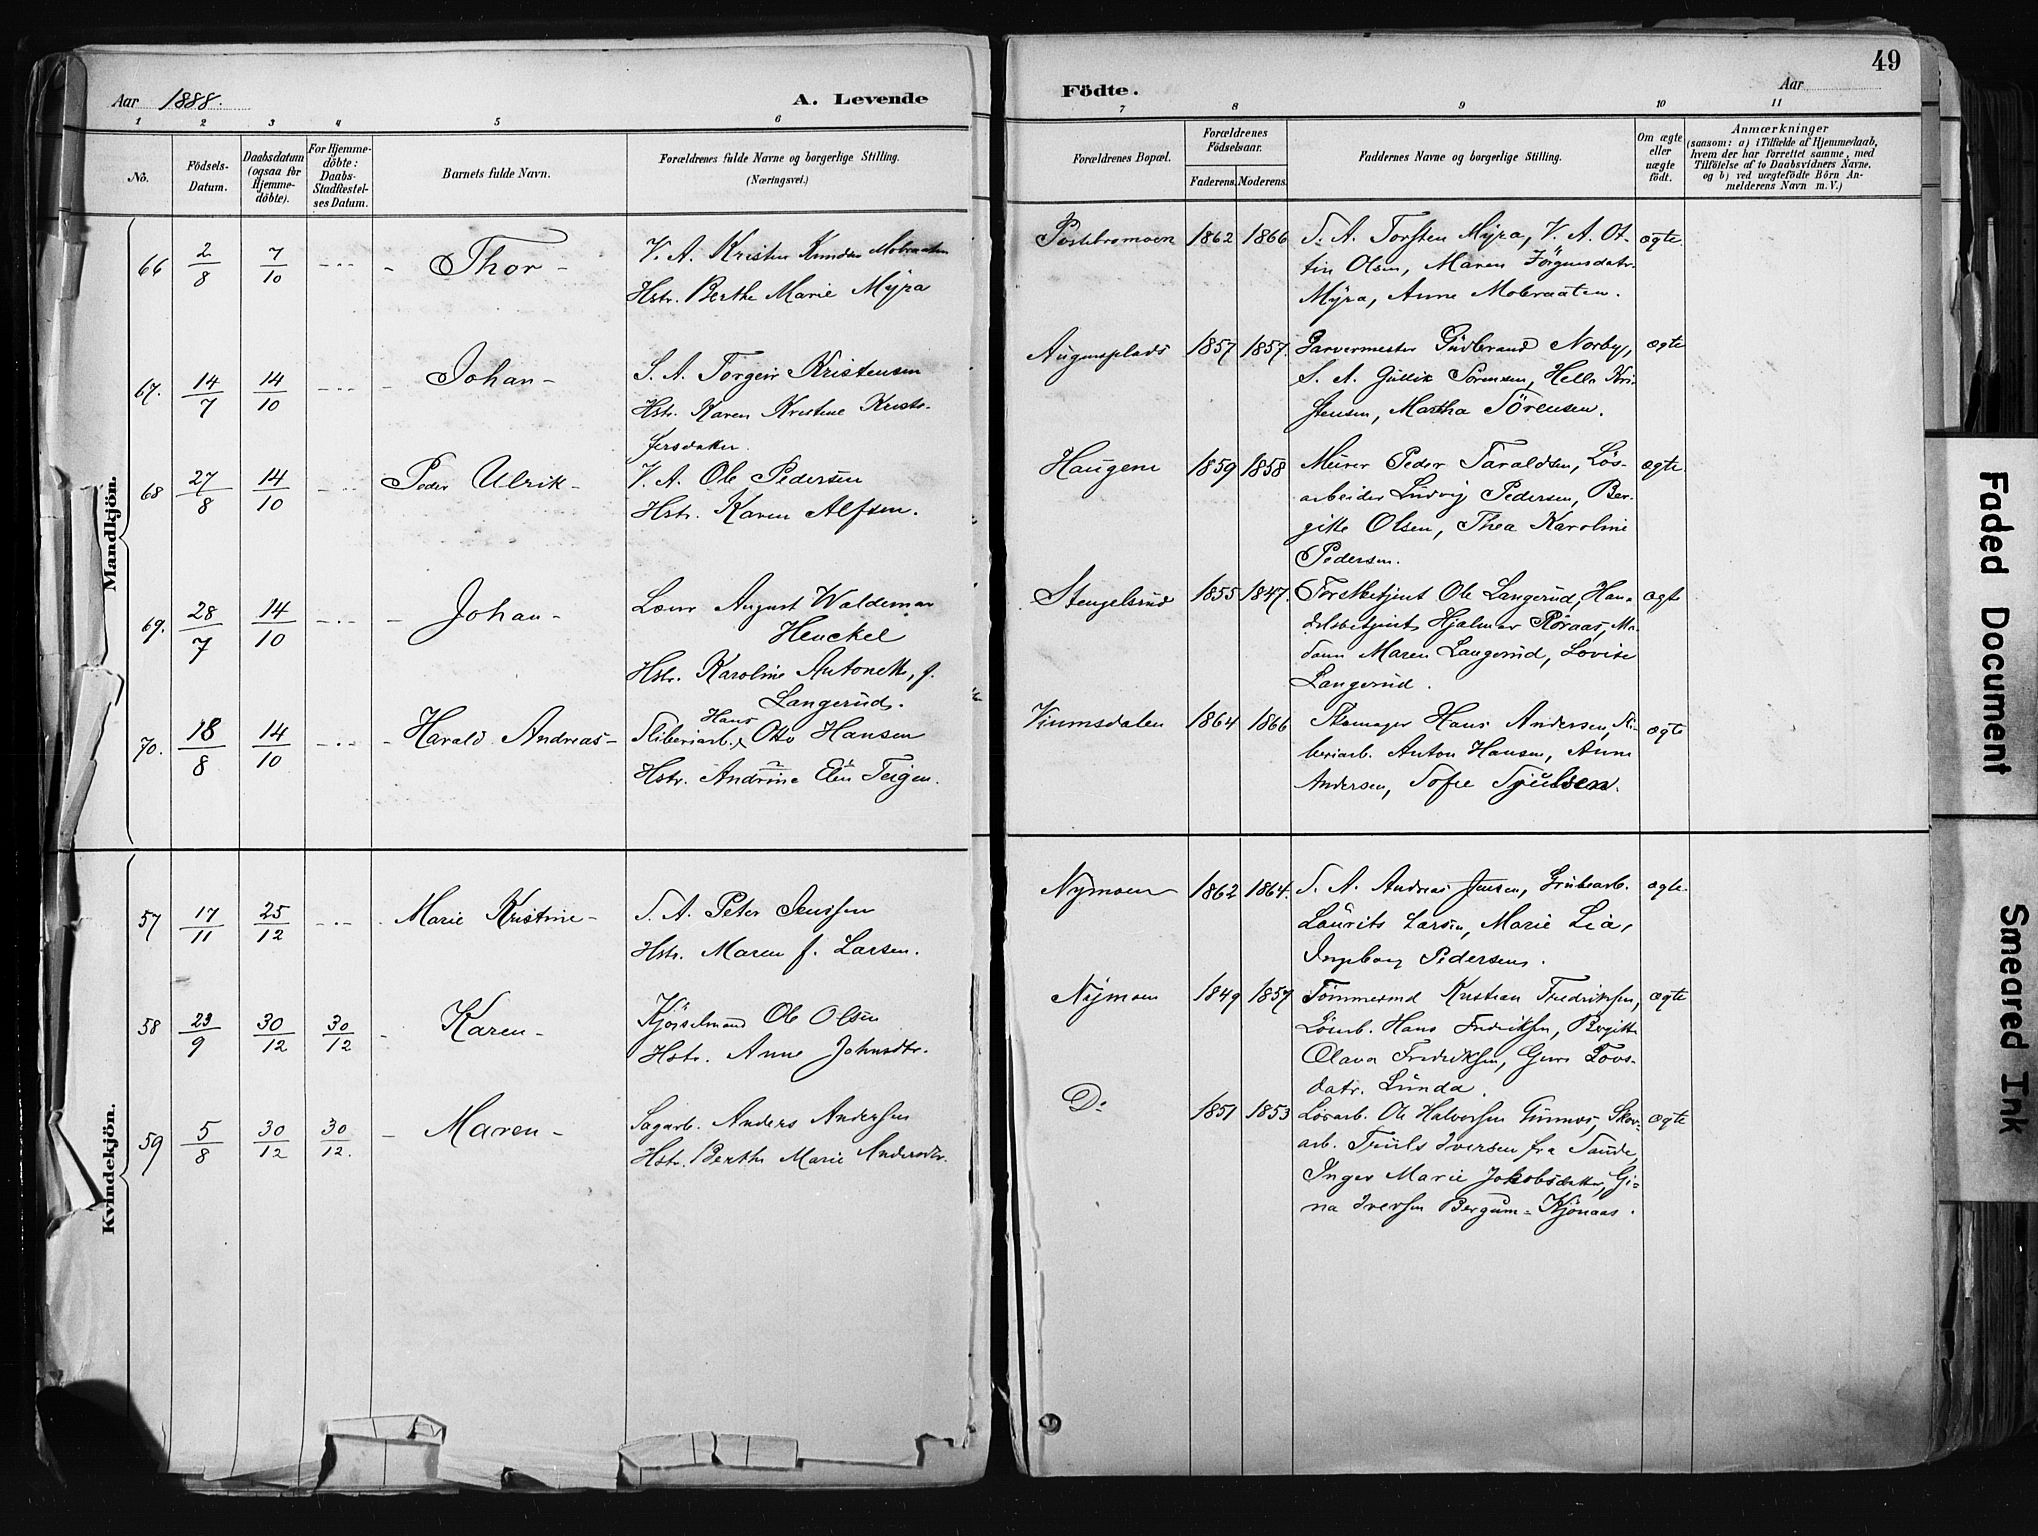 49
Aar 1888.
A. Levende
Födte.
Aar
1 2 3 4 5 6
7 8 9 10 11
No.
Födsels-
Datum.
Daabsdatum
(ogsaa for
Hjemme-
döbte).
For Hjemme-
döbte:
Daabs-
Stadfæstel-
ses Datum.
Barnets fulde Navn.
Forældrenes fulde Navne og borgerlige Stilling.
(Næringsvei.)
Forældrenes Bopæl.
Forældrenes
Födselsaar.
Faderens. Moderens.
Faddernes Navne og borgerlige Stilling.
Om ægte
eller
uægte
födt.
Anmærkninger
(saasom: a) i Tilfælde af Hjemmedaab,
hvem der har forrettet samme, med
Tilföielse af to Daabsvidners Navne.
og b) ved uægtefödte Börn An-
melderens Navn m. V.)
Mandkjön.
66 2/8 7/10 - Thor -
V. A. Kristen Knudsen Mobraaten
Hstr. Berthe Marie Myra
1862 1866
S. A. Torsten Myra, V. A. Ot-
tin Olsen, Maren Jörgensdatr.
Myra, Anne Mobraaten.
ægte.
67. 14/7 14/10 Johan -
S. A. Torgeir Kristensen
Hstr. Karen Kristine Kristo-
fersdatter.
Augunsplads 1857 1857.
Garvermester Gudbrand Norby,
S. A. Gullik Sörensen, Helle Kri-
stensen, Martha Sörensen.
ægte
68 27/8 14/10 Peder Ulrik -
V. A. Ole Pedersen
Hstr. Karen Alfsen.
Haugene 1859 1858
Murer Peder Taraldsen, Lös-
arbeider Ludvig Pedersen, Ber-
gitte Olsen, Thea Karoline
Pedersen.
ægte.
69. 28/7 14/10 - Johan -
August Waldemar
Henckel
Hstr. Karoline Antonette, f.
Langerud.
Stengelsrud 1855 1847.
Forstbetjent Ole Langerud, Han-
delsbetjent Hjalmar Röraas, Ma-
dam Maren Langerud, Lovise
Langerud.
ægte
70. 18/8 14/10 - Harald Andreas -
Sliberiarb. Hans Otto Hansen
Hstr. Andrine Elen Teigen.
Vinmsdalen 1864 1866
Skomager Hans Andersen, Sli-
beriarb. Anton Hansen, Anne
Andersen, Sofie Tjulsen.
ægte
Kvindekjön.
57 17/11 25/12 Marie Kristine -
S. A. Peter Jenssen
Hstr. Maren f. Larsen.
Nymoen 1862 1864.
S. A. Andreas Jensen, Grubearb.
Laurits Larsen, Marie Lia,
Ingeborg Pedersen.
ægte.
58 23/9 30/12 30/12 - Karen -
Kjörselmand Ole Olsen
Hstr. Anne Johnsdtr.
Nymoen 1849 1857
Tömmermd Kristian Fredriksen,
Lösarb. Hans Fredriksen, Bergitte
Olava Fredriksen, Guro Tovs-
datr. Lunda.
ægte
59 5/8 30/12 30/12. - Maren -
Sagarb. Anders Andersen
Hstr. Berthe Marie Andersdtr.
Do 1851 1853
Lösarb. Ole Halvorsen Gunnes, Skov-
arb. Truls Iversen fra Sande,
Inger Marie Jakobsdatter, Gi-
na Iversen Bergum-Kjönaas.
ægte
Faded Document
Smeared Ink